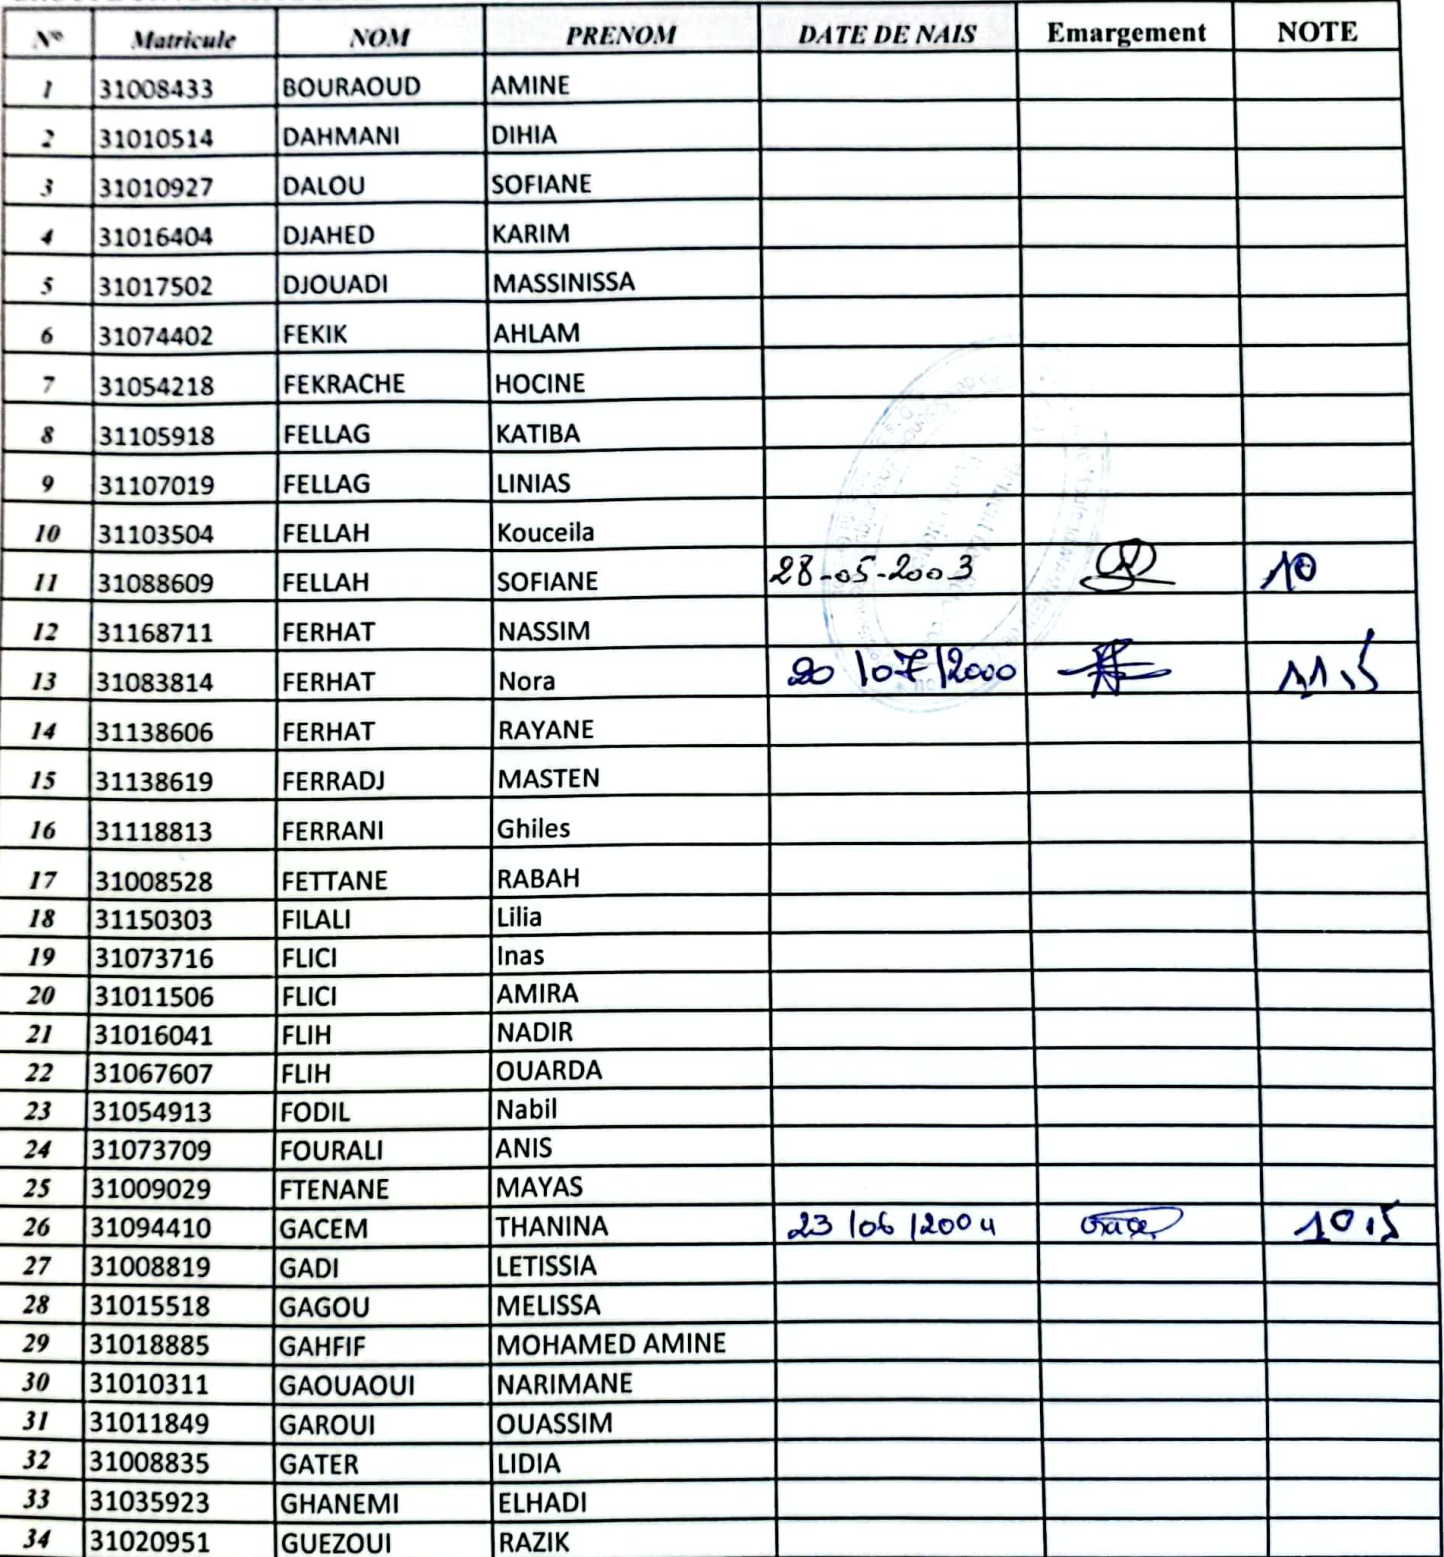 N° Matricule NOM PRENOM DATE DE NAIS Emargement NOTE
1 31008433 BOURAOUD AMINE
2 31010514 DAHMANI DIHIA
3 31010927 DALOU SOFIANE
4 31016404 DJAHED KARIM
5 31017502 DJOUADI MASSINISSA
6 31074402 FEKIK AHLAM
7 31054218 FEKRACHE HOCINE
8 31105918 FELLAG KATIBA
9 31107019 FELLAG LINIAS
10 31103504 FELLAH Kouceila
11 31088609 FELLAH SOFIANE 28-05-2003 10
12 31168711 FERHAT NASSIM
13 31083814 FERHAT Nora 20/07/2000 11,5
14 31138606 FERHAT RAYANE
15 31138619 FERRADJ MASTEN
16 31118813 FERRANI Ghiles
17 31008528 FETTANE RABAH
18 31150303 FILALI Lilia
19 31073716 FLICI Inas
20 31011506 FLICI AMIRA
21 31016041 FLIH NADIR
22 31067607 FLIH OUARDA
23 31054913 FODIL Nabil
24 31073709 FOURALI ANIS
25 31009029 FTENANE MAYAS
26 31094410 GACEM THANINA 23/06/2004 10,5
27 31008819 GADI LETISSIA
28 31015518 GAGOU MELISSA
29 31018885 GAHFIF MOHAMED AMINE
30 31010311 GAOUAOUI NARIMANE
31 31011849 GAROUI OUASSIM
32 31008835 GATER LIDIA
33 31035923 GHANEMI ELHADI
34 31020951 GUEZOUI RAZIK